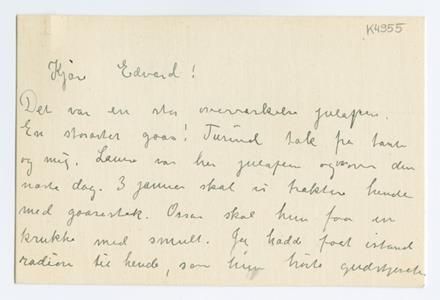 K4955
Kjære Edvard!
Det var en stor overraskelse julaften.
En storartet gaas! Tusind tak fra tante
og mig. Laura var her julaften og over den
næste dag. 3 januar skal vi traktere hende
med gaasestek. Ossaa skal hun faa en
krukke med smult. Jeg hadde faat istand
radion til hende, saa hun hørte gudstjeneste